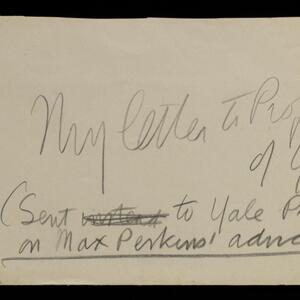 My letter to Prop
of
(Sent instead to Yale Pr
on Max Perkins' advic